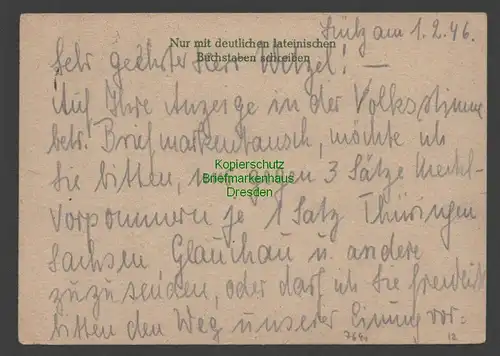 Lütz am 1.2.46.
Nur mit deutlichen lateinischen
Buchstaben schreiben
Sehr geehrter Herr Wetzel! —
Auf Ihre Anzeige in der Volksstimme
betr. Briefmarkentausch, möchte ich
Sie bitten, mir gegen 3 Sätze Meckl-
Kopierschutz
Briefmarkenhaus
Dresden
Vorpommern je 1 Satz Thüringen
Sachsen, Glauchau u. andere
zuzusenden, oder darf ich Sie freundlichst
bitten den Weg unserer Einigung vor:
764 12